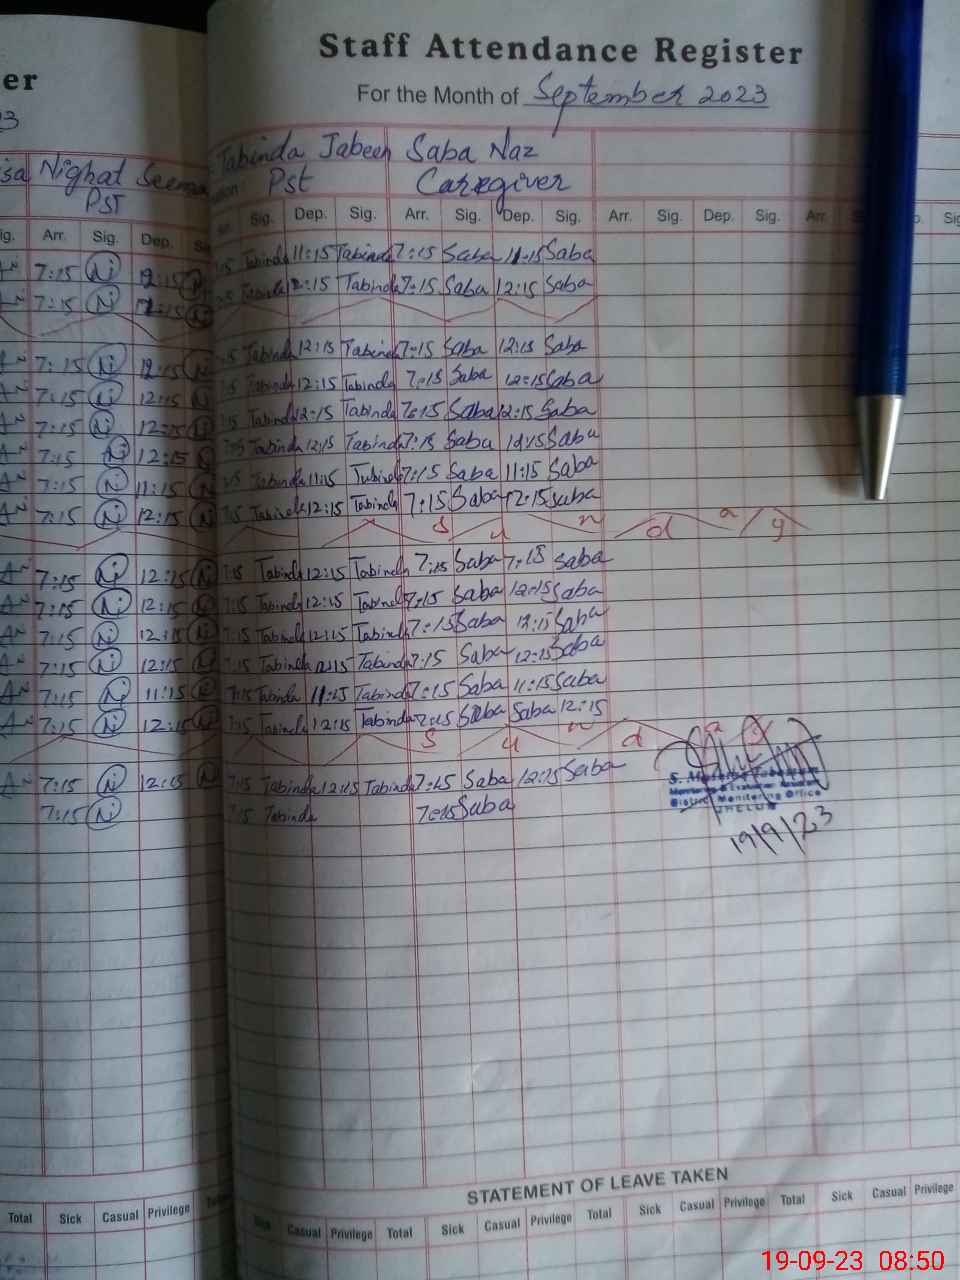 er
Staff Attendance Register
For the Month of September 2023
Nighat Seema Tabinda Jabeen Saba Naz
PST Pst Caregiver
Arr. Sig. Dep. Sig. Dep. Sig. Arr. Sig. Dep. Sig. Arr. Sig. Dep. Sig. Arr.
7:15 Ni 12:15 Tabinda 11:15 Tabinda 7:15 Saba 11:15 Saba
7:15 Ni 12:15 Tabinda 12:15 Tabinda 7:15 Saba 12:15 Saba
7:15 Ni 12:15 Tabinda 12:15 Tabinda 7:15 Saba 12:15 Saba
7:15 Ni 12:15 Tabinda 12:15 Tabinda 7:15 Saba 12:15 Saba
7:15 Ni 12:15 Tabinda 12:15 Tabinda 7:15 Saba 12:15 Saba
7:15 Ni 12:15 7:15 Tabinda 12:15 Tabinda 7:15 Saba 12:15 Saba
7:15 Ni 11:15 Tabinda 11:15 Tabinda 7:15 Saba 11:15 Saba
7:15 Ni 12:15 7:15 Tabinda 12:15 Tabinda 7:15 Saba 12:15 Saba
S u n d a y
7:15 Ni 12:15 7:15 Tabinda 12:15 Tabinda 7:15 Saba 7:15 Saba
7:15 Ni 12:15 7:15 Tabinda 12:15 Tabinda 7:15 Saba 12:15 Saba
7:15 Ni 12:15 7:15 Tabinda 12:15 Tabinda 7:15 Saba 12:15 Saba
7:15 Ni 12:15 7:15 Tabinda 12:15 Tabinda 7:15 Saba 12:15 Saba
7:15 Ni 11:15 7:15 Tabinda 11:15 Tabinda 7:15 Saba 11:15 Saba
7:15 Ni 12:15 7:15 Tabinda 12:15 Tabinda 7:15 Saba Saba 12:15
S u n d a y
7:15 Ni 12:15 7:15 Tabinda 12:15 Tabinda 7:15 Saba 12:15 Saba
7:15 Ni 7:15 Tabinda 7:15 Saba
Monitoring & Evaluation Assistant
District Monitoring Office
JHELUM
19/9/23
STATEMENT OF LEAVE TAKEN
Total Sick Casual Privilege Sick Casual Privilege Total Sick Casual Privilege Total Sick Casual Privilege Total Sick Casual Privilege
19-09-23 08:50